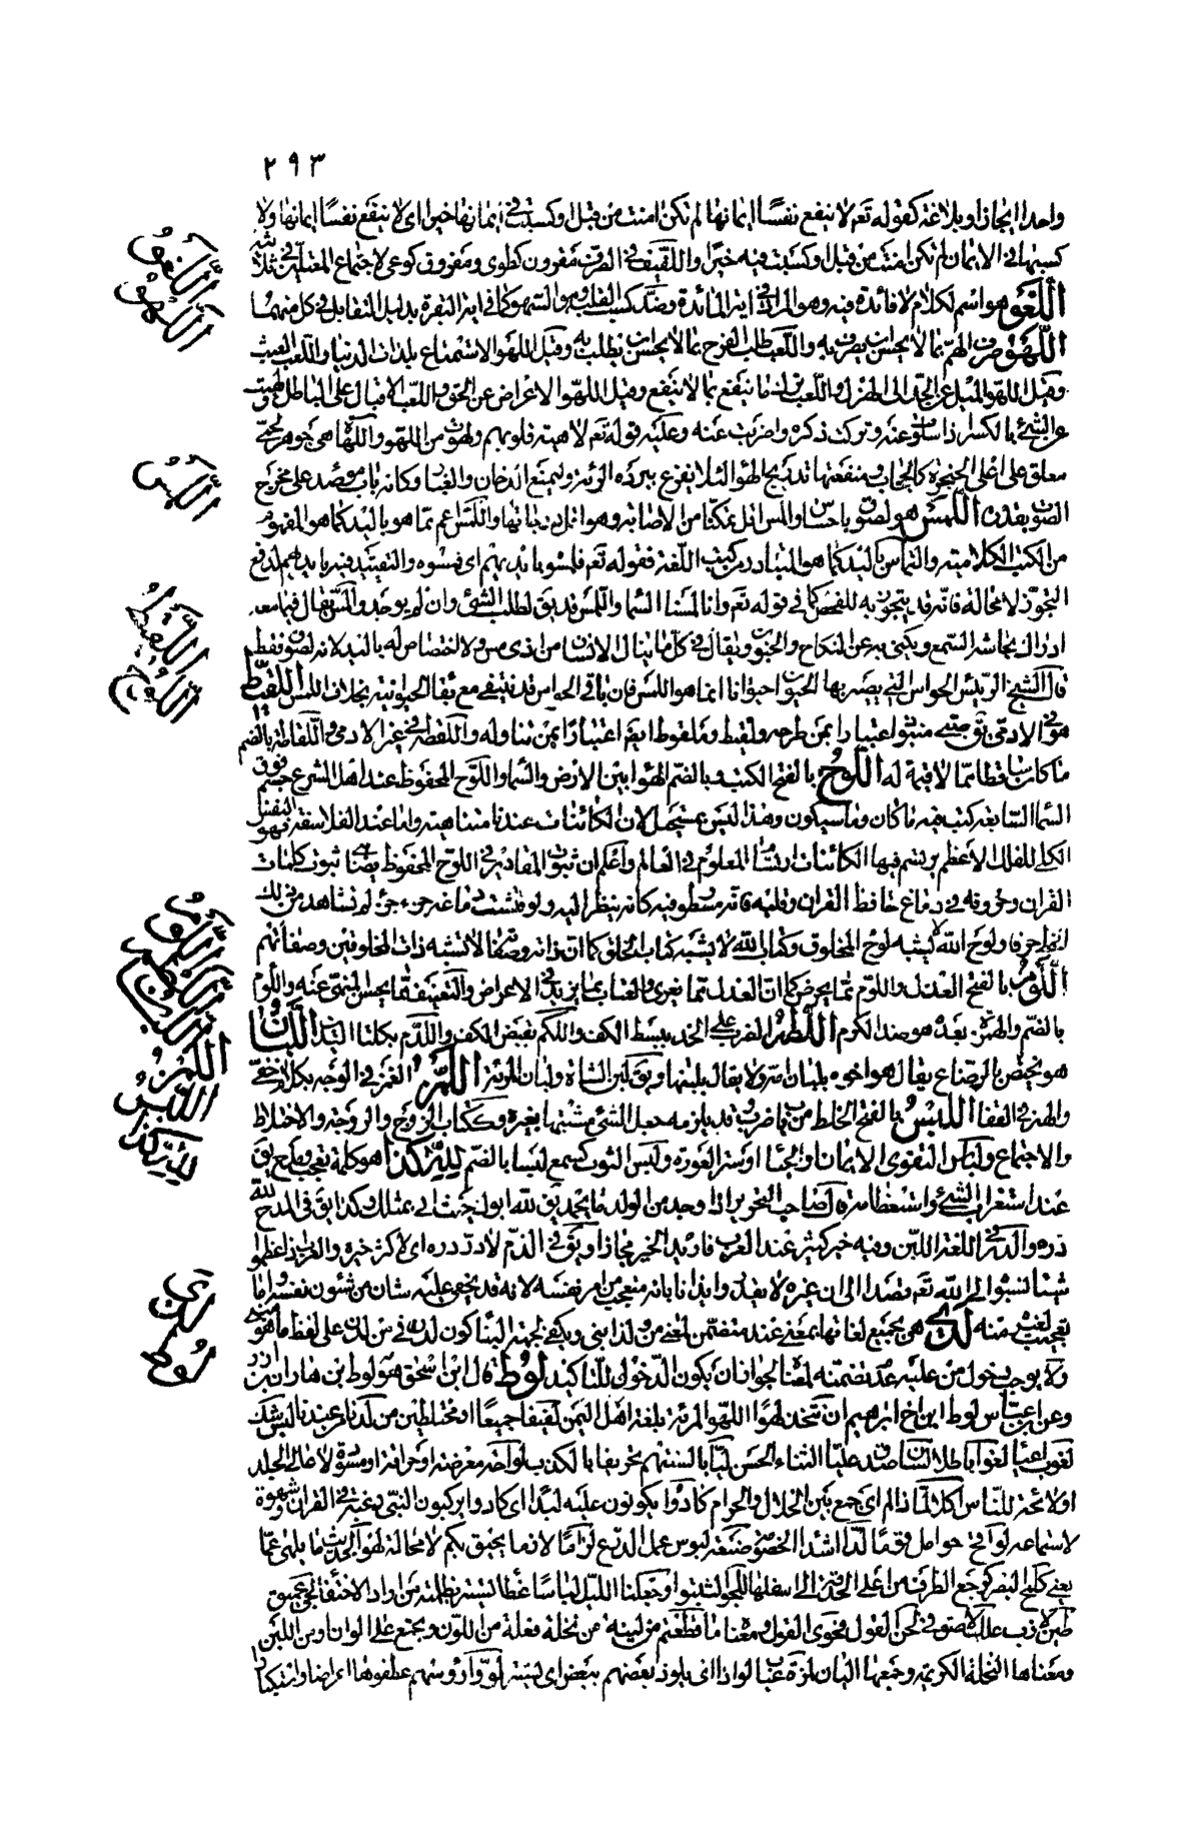 ٢٩٣
واحدا ايجازا وبلاغة كقوله تعم لا ينفع نفسا ايمانها لم تكن امنت من قبل او كسبت في ايمانها خيرا اى لا ينفع نفسا ايمانها ولا
كسبها في الايمان لم تكن امنت من قبل او كسبت فيه خيرا واللفيف في الصرف مقرون كطوى ومفروق كوعى لاجتماع المعتلين في ثلاثيه
اللغو هو اسم لكلام لا فائدة فيه وهو المراد في اية المائدة وضد كسب القلب وهو السهو كما في اية البقرة بدليل التقابل في كل منهما
اللهو صرف الهم بما لا يحسن ان يصرف به واللعب طلب الفرح بما لا يحسن ان يطلب به وقيل اللهو الاستمتاع بلذات الدنيا واللعب العبث
وقيل اللهو الميل عن الجد الى الهزل واللعب ترك ما ينفع بما لا ينفع وقيل اللهو الاعراض عن الحق واللعب الاقبال على الباطل ولهيت
عن الشئ بالكسر اذا سلوت عنه وتركت ذكره واضربت عنه وعليه قوله تعم لاهية قلوبهم ولهوت من اللهو واللهاة هى جوهر لحمى
معلق على اعلى الحنجرة كالحجاب ومنفعتها تدريج الهواء لئلا يقرع ببرده الرئة وليمنع الدخان والغبار وكانه باب موصد على مخرج
الصوت بقدره اللمس هو لصوق باحساس والمس اقل تمكنا من الاصابة وهو اقل درجاتها واللمس اعم مما هو باليد كما هو المفهوم
من الكتب الكلامية والتماس باليد كما هو المتبادر من كتب اللغة فقوله تعم فلمسوه بايديهم اى فمسوه والتقييد فيه بايديهم لدفع
التجوز لا محالة فانه قد يتجوز به للفحص كما في قوله تعم وانا لمسنا السماء واللمس قد يق لطلب الشئ وان لم يوجد والمس يقال فيما معه
ادراك بحاسة السمع ويكنى به عن النكاح والجنون ويقال في كل ما ينال الانسان من اذى مس ولا اختصاص له باليد لانه لصوق فقط
قال الشيخ الرئيس الحواس التى يصير بها الحيوان حيوانا انما هو اللمس فان باقى الحواس قد ينتفى مع بقاء الحيوانية بخلاف اللمس اللقيط
هو في الادمى يق صبى منبوذ اعتبارا بمن طرحه ولقيط وملقوط ايضا اعتبارا بمن تناوله واللقطة في غير الادمى واللقاطة بالضم
ما كان ساقطا مما لا قيمة له اللوح بالفتح الكتف وبالضم الهواء بين الارض والسماء واللوح المحفوظ عند اهل الشرع جسم فوق
السماء السابعة كتب فيه ما كان وما سيكون وهذا ليس بمستحيل لان الكائنات عندنا متناهية واما عند الفلاسفة فهو النفس
الكلى للفلك الاعظم يرتسم فيها الكائنات ارتسام المعلوم في العالم واعلم ان ثبوت المقادير في اللوح المحفوظ يضاهى ثبوت كلمات
القران وحروفه في دماغ حافظ القران وقلبه فانه مسطور فيه كانه ينظر اليه ولو فتشت دماغه جزء جزء لم تشاهد من ذلك
الخط حرفا ولوح الله لا يشبه لوح المخلوق وكتاب الله لا يشبه كتاب الخلق كما ان ذاته وصفاته لا تشبه ذات المخلوقين وصفاتهم
اللوم بالفتح العذل واللوم مما يحرض كما ان العذل مما يغرى والعتاب مما يزيد في الاعراض والتعنيف مما يحسن المنهى عنه واللوم
بالضم والهمزة بعده هو ضد الكرم اللطم الضرب على الخد ببسط الكف واللكم بقبض الكف واللدم بكلتا اليدين اللبان
هو يختص بالرضاع يقال هو اخوه بلبان امه ولا يقال بلبنها ويق لبن الشاة ولبان المرئة اللمز الغمز في الوجه بكلام خفى
والهمز في القفا اللبس بالفتح الخلط من باب ضرب وقد يلزمه جعل الشئ مشتبها بغيره وككتاب الزوج والزوجة والاختلاط
والاجتماع ولباس التقوى الايمان او الحياء او ستر العورة ولبس الثوب كسمع لبسا بالضم لله در كذا هو كلمة تعجب ومدح يق
عند استغراب الشئ واستعظامه قال صاحب التحرير اذا وجد من الولد ما يحمد يق لله ابوك حيث اتى بمثلك وكذا يق في المدح لله
دره والدر في اللغة اللبن وفيه خير كثير عند العرب فاريد الخير مجازا ويق في الذم لا در دره اى لا كثر خيره والعرب اذا عظموا
شيئا نسبوا الى الله تعم قصدا الى ان غيره لا يقدر وايذانا بانه متعجب من امر نفسه لانه قد يخفى عليه شان من شئون نفسه واما
تعجب لغيره منه لدى هى بجميع لغاتها بمعنى عند متضمن لمعنى من ولذا بنى ويكفى لجهة البناء كون لدن في من لدن على لفظ ما هو مبنى
ولا يوجب دخول من عليه عدم تضمنه لمعناه لجواز ان يكون الدخول للتاكيد لوط قال ابن اسحق هو لوط ابن هاران بن ازر
وعن ابن عباس لوط ابن اخ ابرهيم ان نتخذ لهوا اللهو المرئة بلغة اهل اليمن لفيفا جميعا او مختلطين من لدنا من عندنا لبس شك
لغوب اعياء لغوا باطلا لسان صدق عليا الثناء الحسن ليا بالسنتهم تحريفا بالكذب لواحة معرضة او حراقة او مسودة لاعالى الجلد
او لائحة للناس اكلا لما ذا لم اى جمع بين الحلال والحرام كادوا يكونون عليه لبدا اى كادوا يركبون النبى رغبة في القران وشهوة
لاستماعه لواقح حوامل قوما لدا اشداء الخصومة صنعة لبوس عمل الدرع لزاما لازما يحيق بكم لا محالة لهو الحديث ما يلهى عما
يعنى كلمح البصر كرجع الطرف من اعلى الحدقة الى اسفلها للجوا لثبتوا وجعلنا الليل لباسا غطاء يستتر بظلمته من اراد الاختفاء لجى عميق
طين لازب علك لاصق في لحن القول فحوى القول ومعناه ما قطعتم من لينة من نخلة فعلة من اللون ويجمع على الوان ومن اللين
ومعناها النخلة الكريمة وجمعها اليان لمزة عياب لواذا اى يلوذ بعضهم ببعض اى يستتر لووا رؤوسهم عطفوها اعراضا واستكبارا
اللغو
اللهو
اللمس
اللقيط
اللوح
اللوم
اللطم
اللبان
اللمز
اللبس
لله در كذا
لدى
لوط